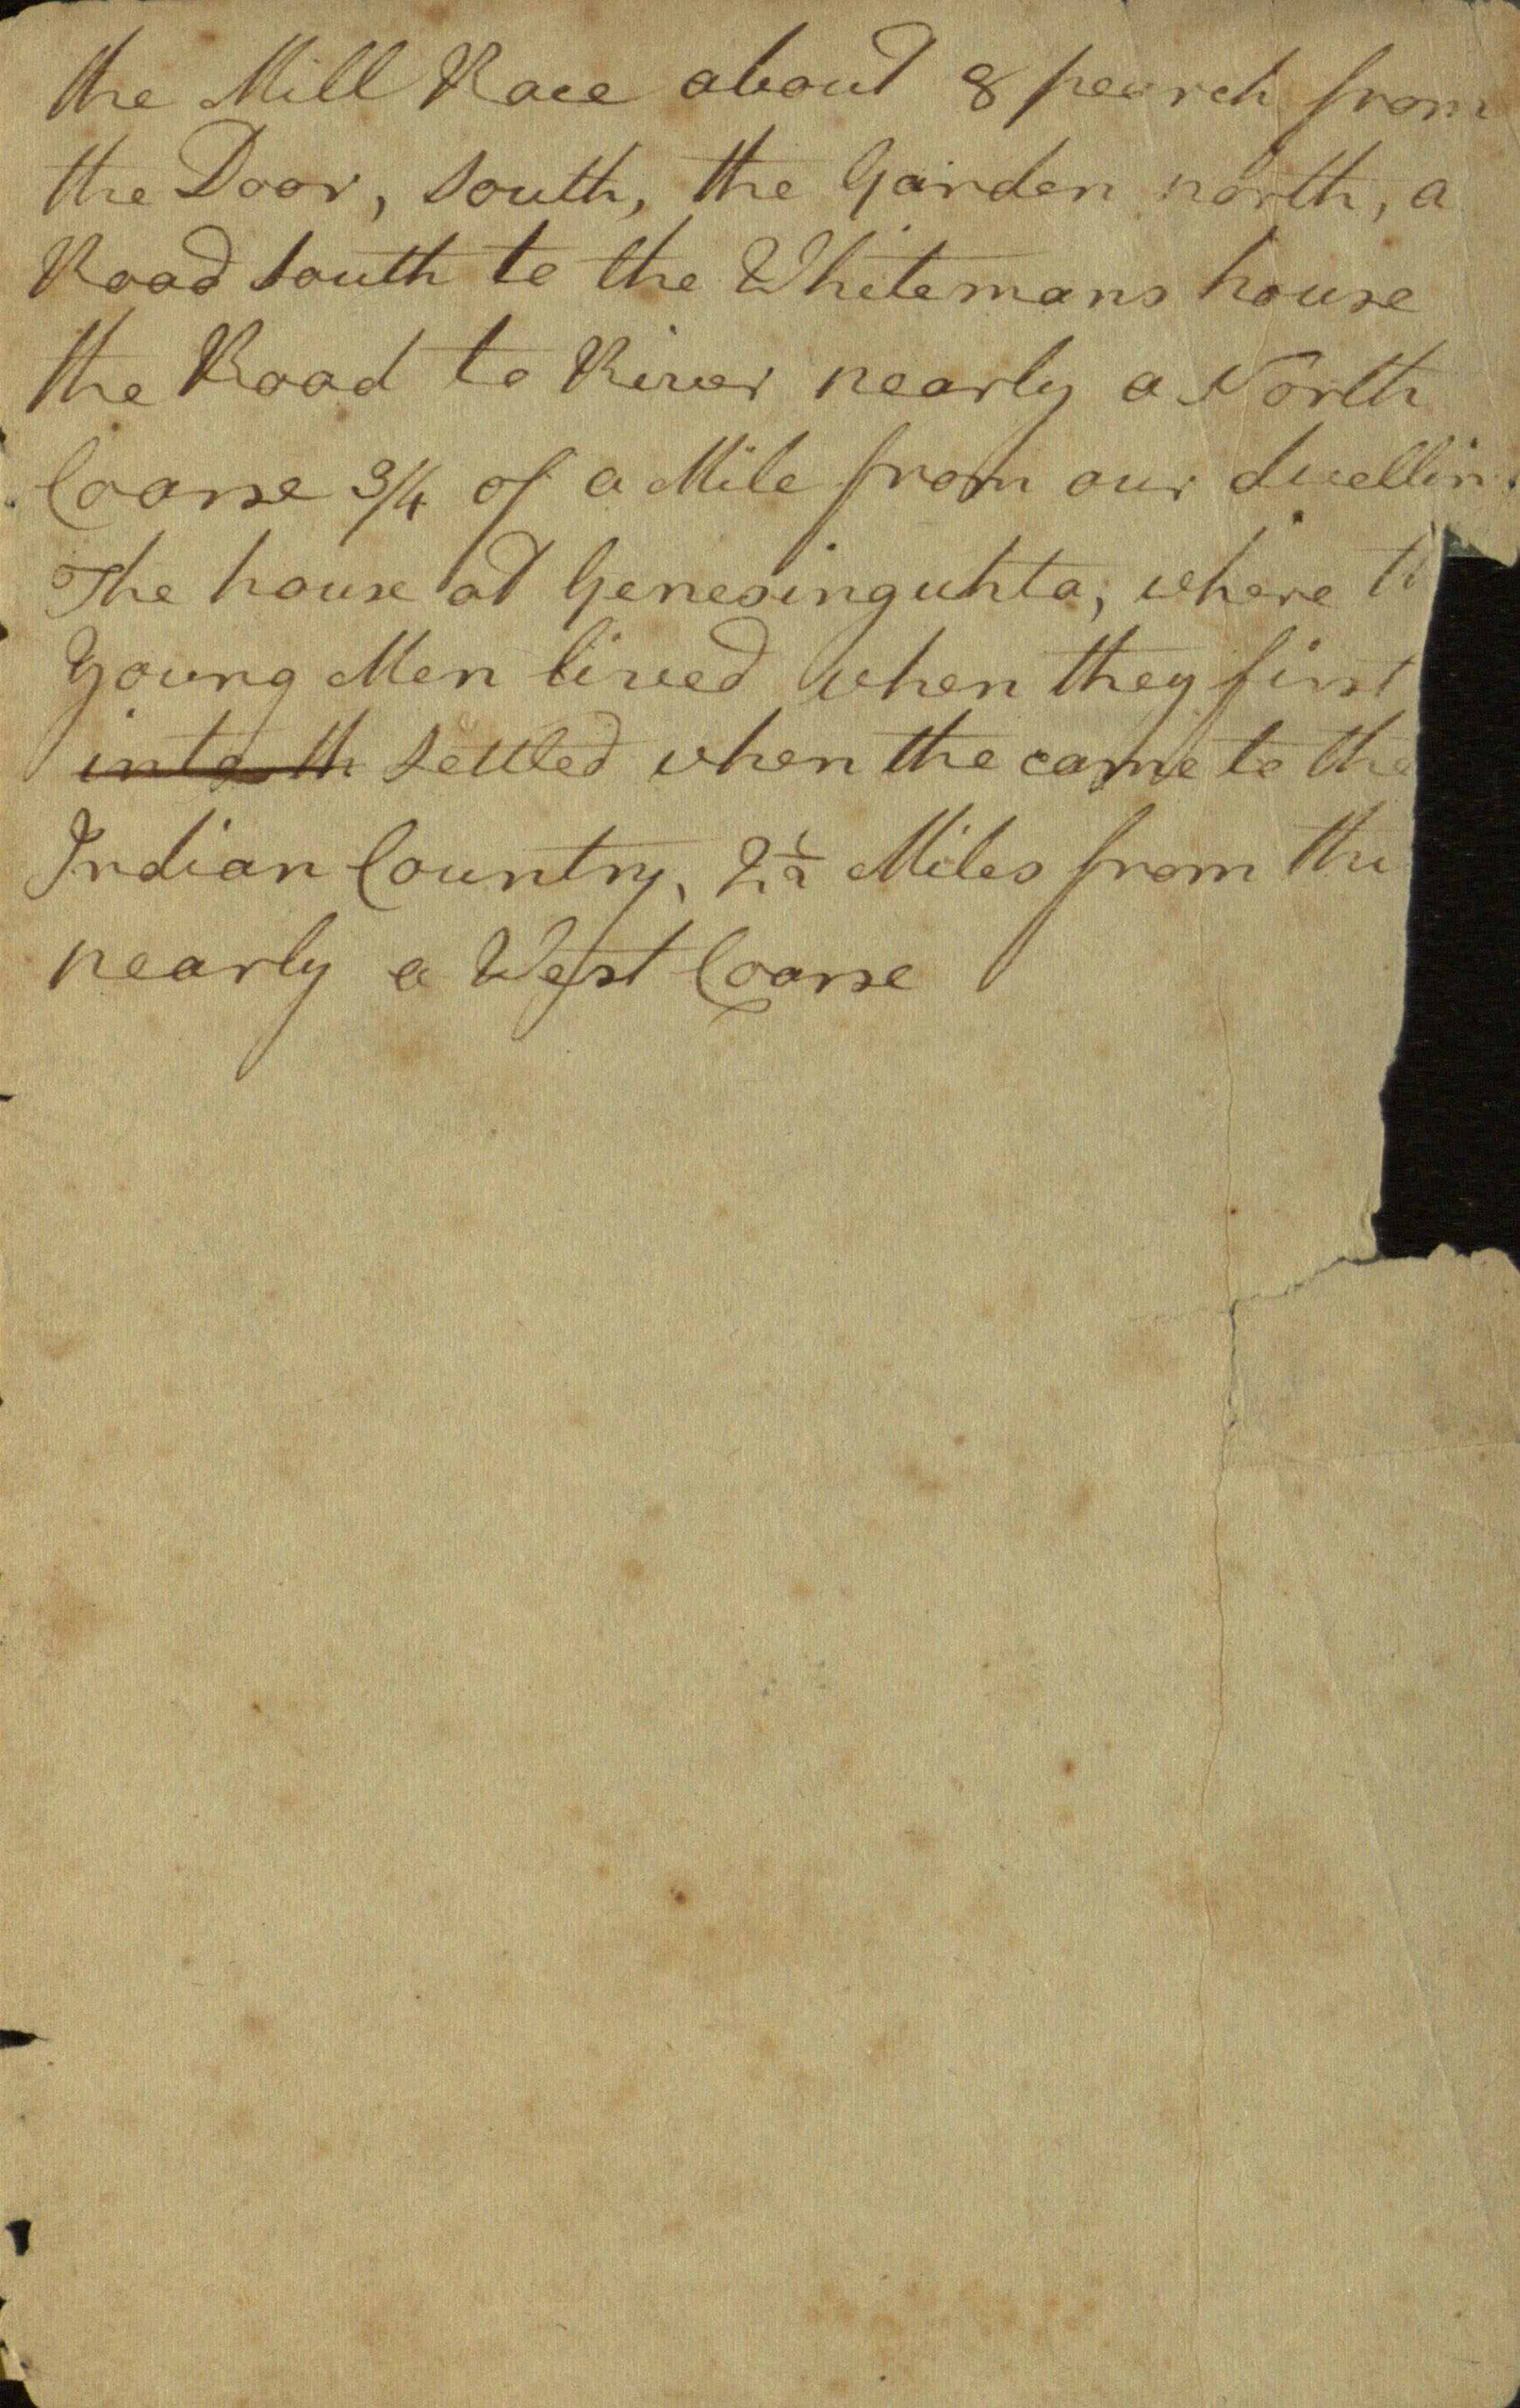 the Mill Race about 8 pearch from
the Door, south, the Garden north, a
Road south to the Whitemans house
the Road to River nearly a North
Coarse 3/4 of a Mile from our dwellin
The house at Genesinguhta, where th
Young Men lived when they first
into th settled when the came to the
Indian Country, 2 1/2 Miles from thi
nearly a West Coarse